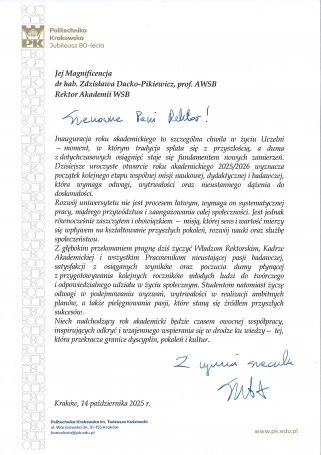 Politechnika
Krakowska
Jubileusz 80-lecia
PK
Jej Magnificencja
dr hab. Zdzisława Dacko-Pikiewicz, prof. AWSB
Rektor Akademii WSB
Szanowna Pani Rektor!
Inauguracja roku akademickiego to szczególna chwila w życiu Uczelni
– moment, w którym tradycja splata się z przyszłością, a duma
z dotychczasowych osiągnięć staje się fundamentem nowych zamierzeń.
Dzisiejsze uroczyste otwarcie roku akademickiego 2025/2026 wyznacza
początek kolejnego etapu wspólnej misji naukowej, dydaktycznej i badawczej,
która wymaga odwagi, wytrwałości oraz nieustannego dążenia do
doskonałości.
Rozwój uniwersytetu nie jest procesem łatwym, wymaga on systematycznej
pracy, mądrego przywództwa i zaangażowania całej społeczności. Jest jednak
równocześnie zaszczytem i obowiązkiem – misją, której sens i wartość mierzy
się wpływem na kształtowanie przyszłych pokoleń, rozwój nauki oraz służbę
społeczeństwu.
Z głębokim przekonaniem pragnę dziś życzyć Władzom Rektorskim, Kadrze
Akademickiej i wszystkim Pracownikom nieustającej pasji badawczej,
satysfakcji z osiąganych wyników oraz poczucia dumy płynącej
z przygotowywania kolejnych roczników młodych ludzi do twórczego
i odpowiedzialnego udziału w życiu społecznym. Studentom natomiast życzę
odwagi w podejmowaniu wyzwań, wytrwałości w realizacji ambitnych
planów, a także pielęgnowania pasji, które staną się źródłem przyszłych
sukcesów.
Niech nadchodzący rok akademicki będzie czasem owocnej współpracy,
inspirujących odkryć i wzajemnego wspierania się w drodze ku wiedzy – tej,
która przekracza granice dyscyplin, pokoleń i kultur.
Z wyrazami szacunku
Kraków, 14 października 2025 r.
Politechnika Krakowska im. Tadeusza Kościuszki
ul. Warszawska 24, 31-155 Kraków
www.pk.edu.pl